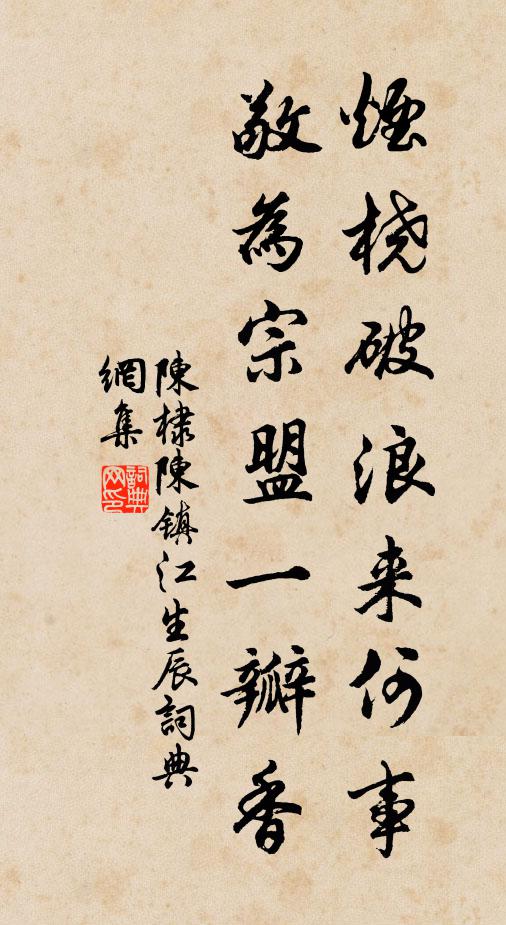 煙橈破浪来何事
敬為宗盟一瓣香
陳棣陳鎮江生辰詞典
網集
詞典
网印